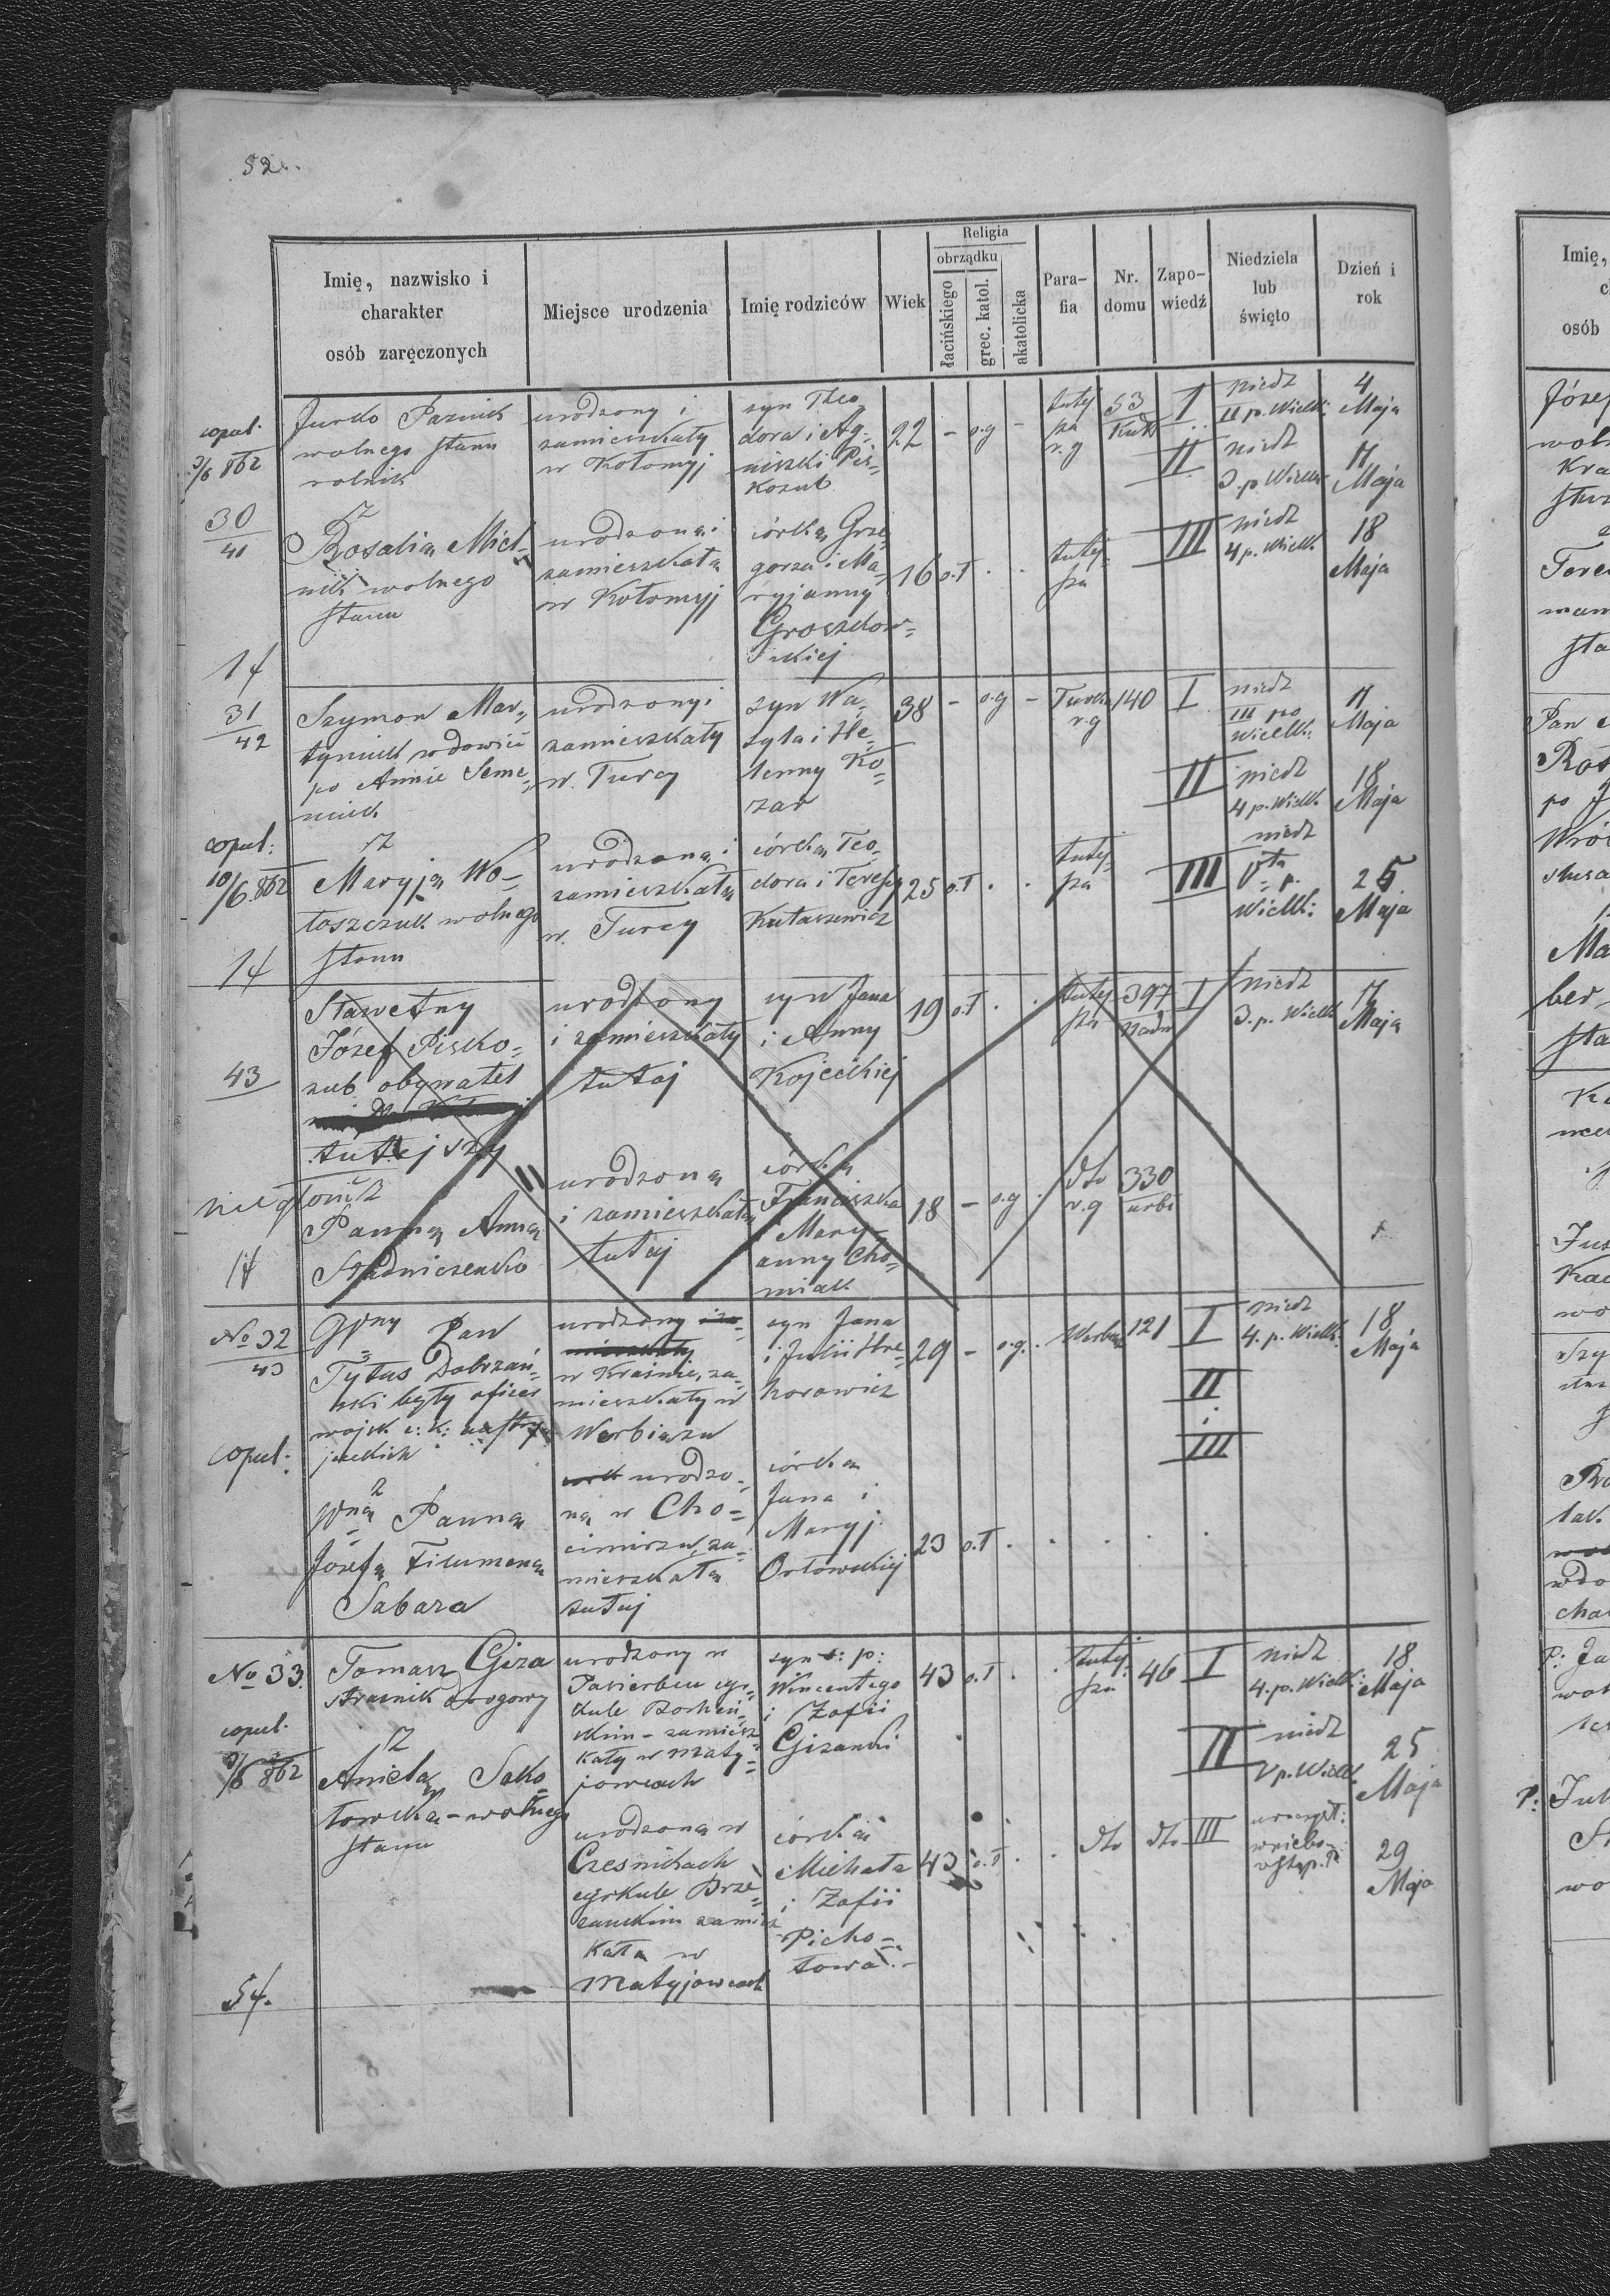 52.
Imię, nazwisko i charakter osób zaręczonych
Miejsce urodzenia
Imię rodziców
Wiek
Religia
obrządku
łacińskiego
grec. katol.
akatolicka
Para-fia
Nr. domu
Zapo-wiedź
Niedziela lub święto
Dzień i rok
copul.
862
30
41
Jurko Paznik
wolnego stanu
rolnik
urodzony i
zamieszkały
w Kołomyj
syn Theo
dora i Ag=
niszki Pis=
kozub
22 - o.g -
tutej
sza
r.g
53
I
niedz
II p. Wielk:
4
Maja
II
niedz
3. p. Wielk.
11
Maja
z
Rosalią Miel=
nik wolnego
stanu
urodzoną i
zamieszkałą
w Kołomyj
córką Grze
gorza i Ma=
ryjanny
Groszkow=
skiej
16 o.ł . .
tutej
sza
III
niedz
4 p. Wielk.
18
Maja
14
31
42
Szymon Mar=
tyniuk wdowiec
po Annie Seme=
niuk
urodzony i
zamieszkały
w Turcy
syn Wa=
syla i He=
lenny Ko=
zar
38 - o.g -
r.g
140
I
niedz
III po
Wielk:
11
Maja
II
niedz
4 p. Wielk.
18
Maja
copul:
10/6 862
z
Maryją Wo=
łoszczuk wolnego
stanu
urodzoną i
zamieszkałą
w Turcy
córką Teo=
dora i Teresy
Kułaszewicz
25 o.ł . .
tutej=
sza
III
niedz
Vta p.
Wielk:
25
Maja
14
43
Sławetny
Józef Pisko=
zub obywatel
tutejszy
urodzony
i zamieszkały
tutaj
syn Jana
i Anny
Kojeckiej
19 o.ł . .
tutej
sza
397
I
niedz
3. p. Wielk
11
Maja
z
Panną Anną
Stadniczenko
urodzoną
i zamieszkałą
tutaj
córką
Franciszka
i Mary=
anny Cho=
miak
18 - o.g .
dto
r.g
330
urbi
14
No 32
43
Pan
Tytus Dobrzań=
ski były oficer
wojsk c: k: austry=
jackich
urodzony
w Kraśnie, za=
mieszkały w
Werbiążu
syn Jana
i Julii Hre=
horowicz
29 - o.g. .
121
I
niedz
4. p. Wielk.
18
Maja
II
III
copul.
z
Panną
Józefą Filumeną
Sabara
urodzo=
ną w Cho=
cimirzu, za=
mieszkałą
tutaj
córką
Jana i
Maryj
Orłowskiej
23 o.ł . . . .
No 33.
Tomasz Giza
strażnik drogowy
urodzony w
Pasierbcu cyr=
kule Bocheń=
skim - zamiesz
kały w Maty=
jowcach
syn ś: p:
Wincentego
i Zofii
Gizanki
43 o.ł . .
tutej
sza
46
I
niedz
4. p. Wielk:
18
Maja
copul.
862
II
niedz
V p. Wielk.
25
Maja
z
Anielą Soko
łowską - wolnego
stanu
urodzoną w
Czesnikach
cyrkule Brze=
zańskim zamiesz
kałą w
Matyjowcach
córką
Michała
i Zofii
Picho=
towa
43 o.ł . .
dto
dto
III
uroczyst:
wniebo=
wstąp. P.
29
Maja
54.
Imię,
osób